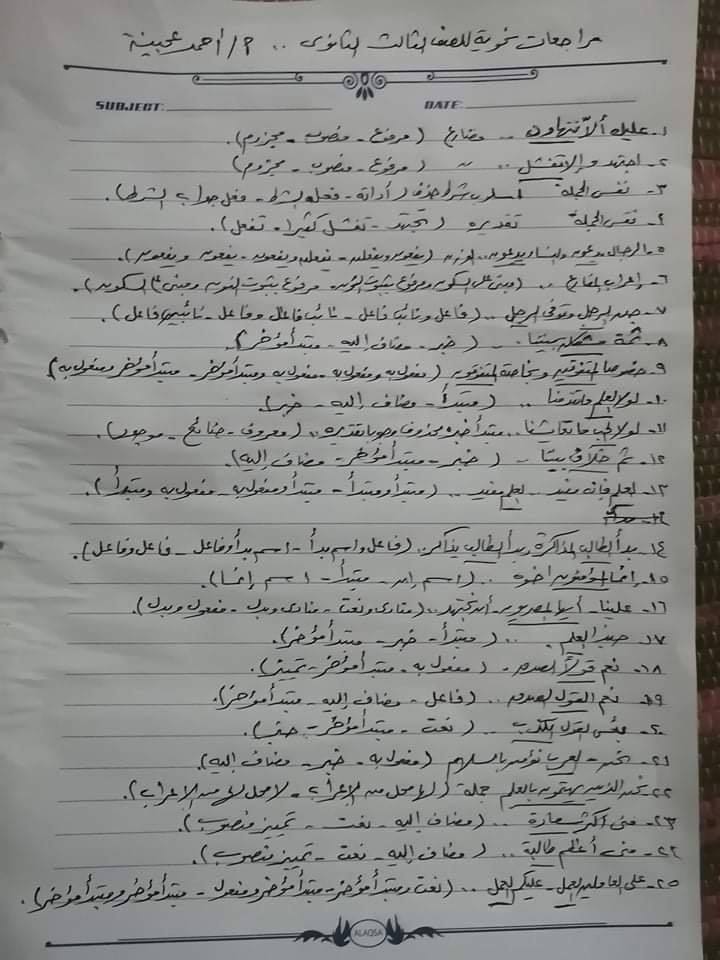 مراجعات نحوية للصف الثالث الثانوى .. أ/ أحمد عجيبة
SUBJECT: DATE:
١- عليك ألا تتهاون .. مضارع (مرفوع - منصوب - مجزوم).
٢- اجتهد وإلا تفشل .. " (مرفوع - منصوب - مجزوم)
٣- نفس الجملة أسلوب شرط حذف (أداته - فعل الشرط - فعل جواب الشرط).
٤- نفس الجملة تقديره (تجتهد - تفشل كثيرا - تفعل).
٥- الرجال يدعون والنساء يدعون .. الوزن (يفعون ويفعلن - يفعلن ويفعون - يفعون ويفعون).
٦- إعراب المضارع .. (مبنى على السكون ومرفوع بثبوت النون - مرفوع بثبوت النون ومبنى على السكون).
٧- الرجل وتوفى الرجل .. (فاعل ونائب فاعل - نائب فاعل وفاعل - نائبي فاعل).
٨- ثمة مشكلة بيننا .. (خبر - مضاف إليه - مبتدأ مؤخر).
٩- خصوصا المتفوقين وبخاصة المتفوقون (مفعول به ومفعول به - مفعول به ومبتدأ مؤخر - مبتدأ مؤخر ومفعول به)
١٠- لولا العلم ما تقدمنا .. (مبتدأ - مضاف إليه - خبر).
١١- لولا الحب ما تعايشنا .. مبتدأ خبره محذوف وجوبا تقديره .. (معروف - ضائع - موجود).
١٢- ثم خلاف بيننا .. (خبر - مبتدأ مؤخر - مضاف إليه).
١٣- العلم فإنه مفيد - العلم مفيد .. (مبتدأ ومبتدأ - مبتدأ ومفعول به - مفعول به ومبتدأ).
١٤- بدأ الطالب المذاكرة، بدأ الطالب يذاكر .. (فاعل واسم بدأ - اسم بدأ وفاعل - فاعل وفاعل).
١٥- إنما المؤمنون إخوة .. (اسم إن - مبتدأ - اسم إنما).
١٦- علينا - أيها المصريون - أن نجتهد .. (منادى ونعت - منادى وبدل - مفعول وبدل).
١٧- حبذا العلم .. (مبتدأ - خبر - مبتدأ مؤخر).
١٨- نعم قولاً الصدق - (مفعول به - مبتدأ مؤخر - تمييز).
١٩- نعم القول الصدق .. (فاعل - مضاف إليه - مبتدأ مؤخر).
٢٠- بئس القول الكذب .. (نعت - مبتدأ مؤخر - خبر).
٢١- نحن - العرب - نؤمن بالسلام (مفعول به - خبر - مضاف إليه).
٢٢- نحن الذين يهتمون بالعلم جملة (لها محل من الإعراب - لا محل لها من الإعراب).
٢٣- منى أكثر سعادة .. (مضاف إليه - نعت - تمييز منصوب).
٢٤- منى أعظم طالبة .. (مضاف إليه - نعت - تمييز منصوب).
٢٥- على العاملين العمل - عليكم العمل .. (نعت ومبتدأ مؤخر - مبتدأ مؤخر ومفعول - مبتدأ مؤخر ومبتدأ مؤخر).
ALAQSA